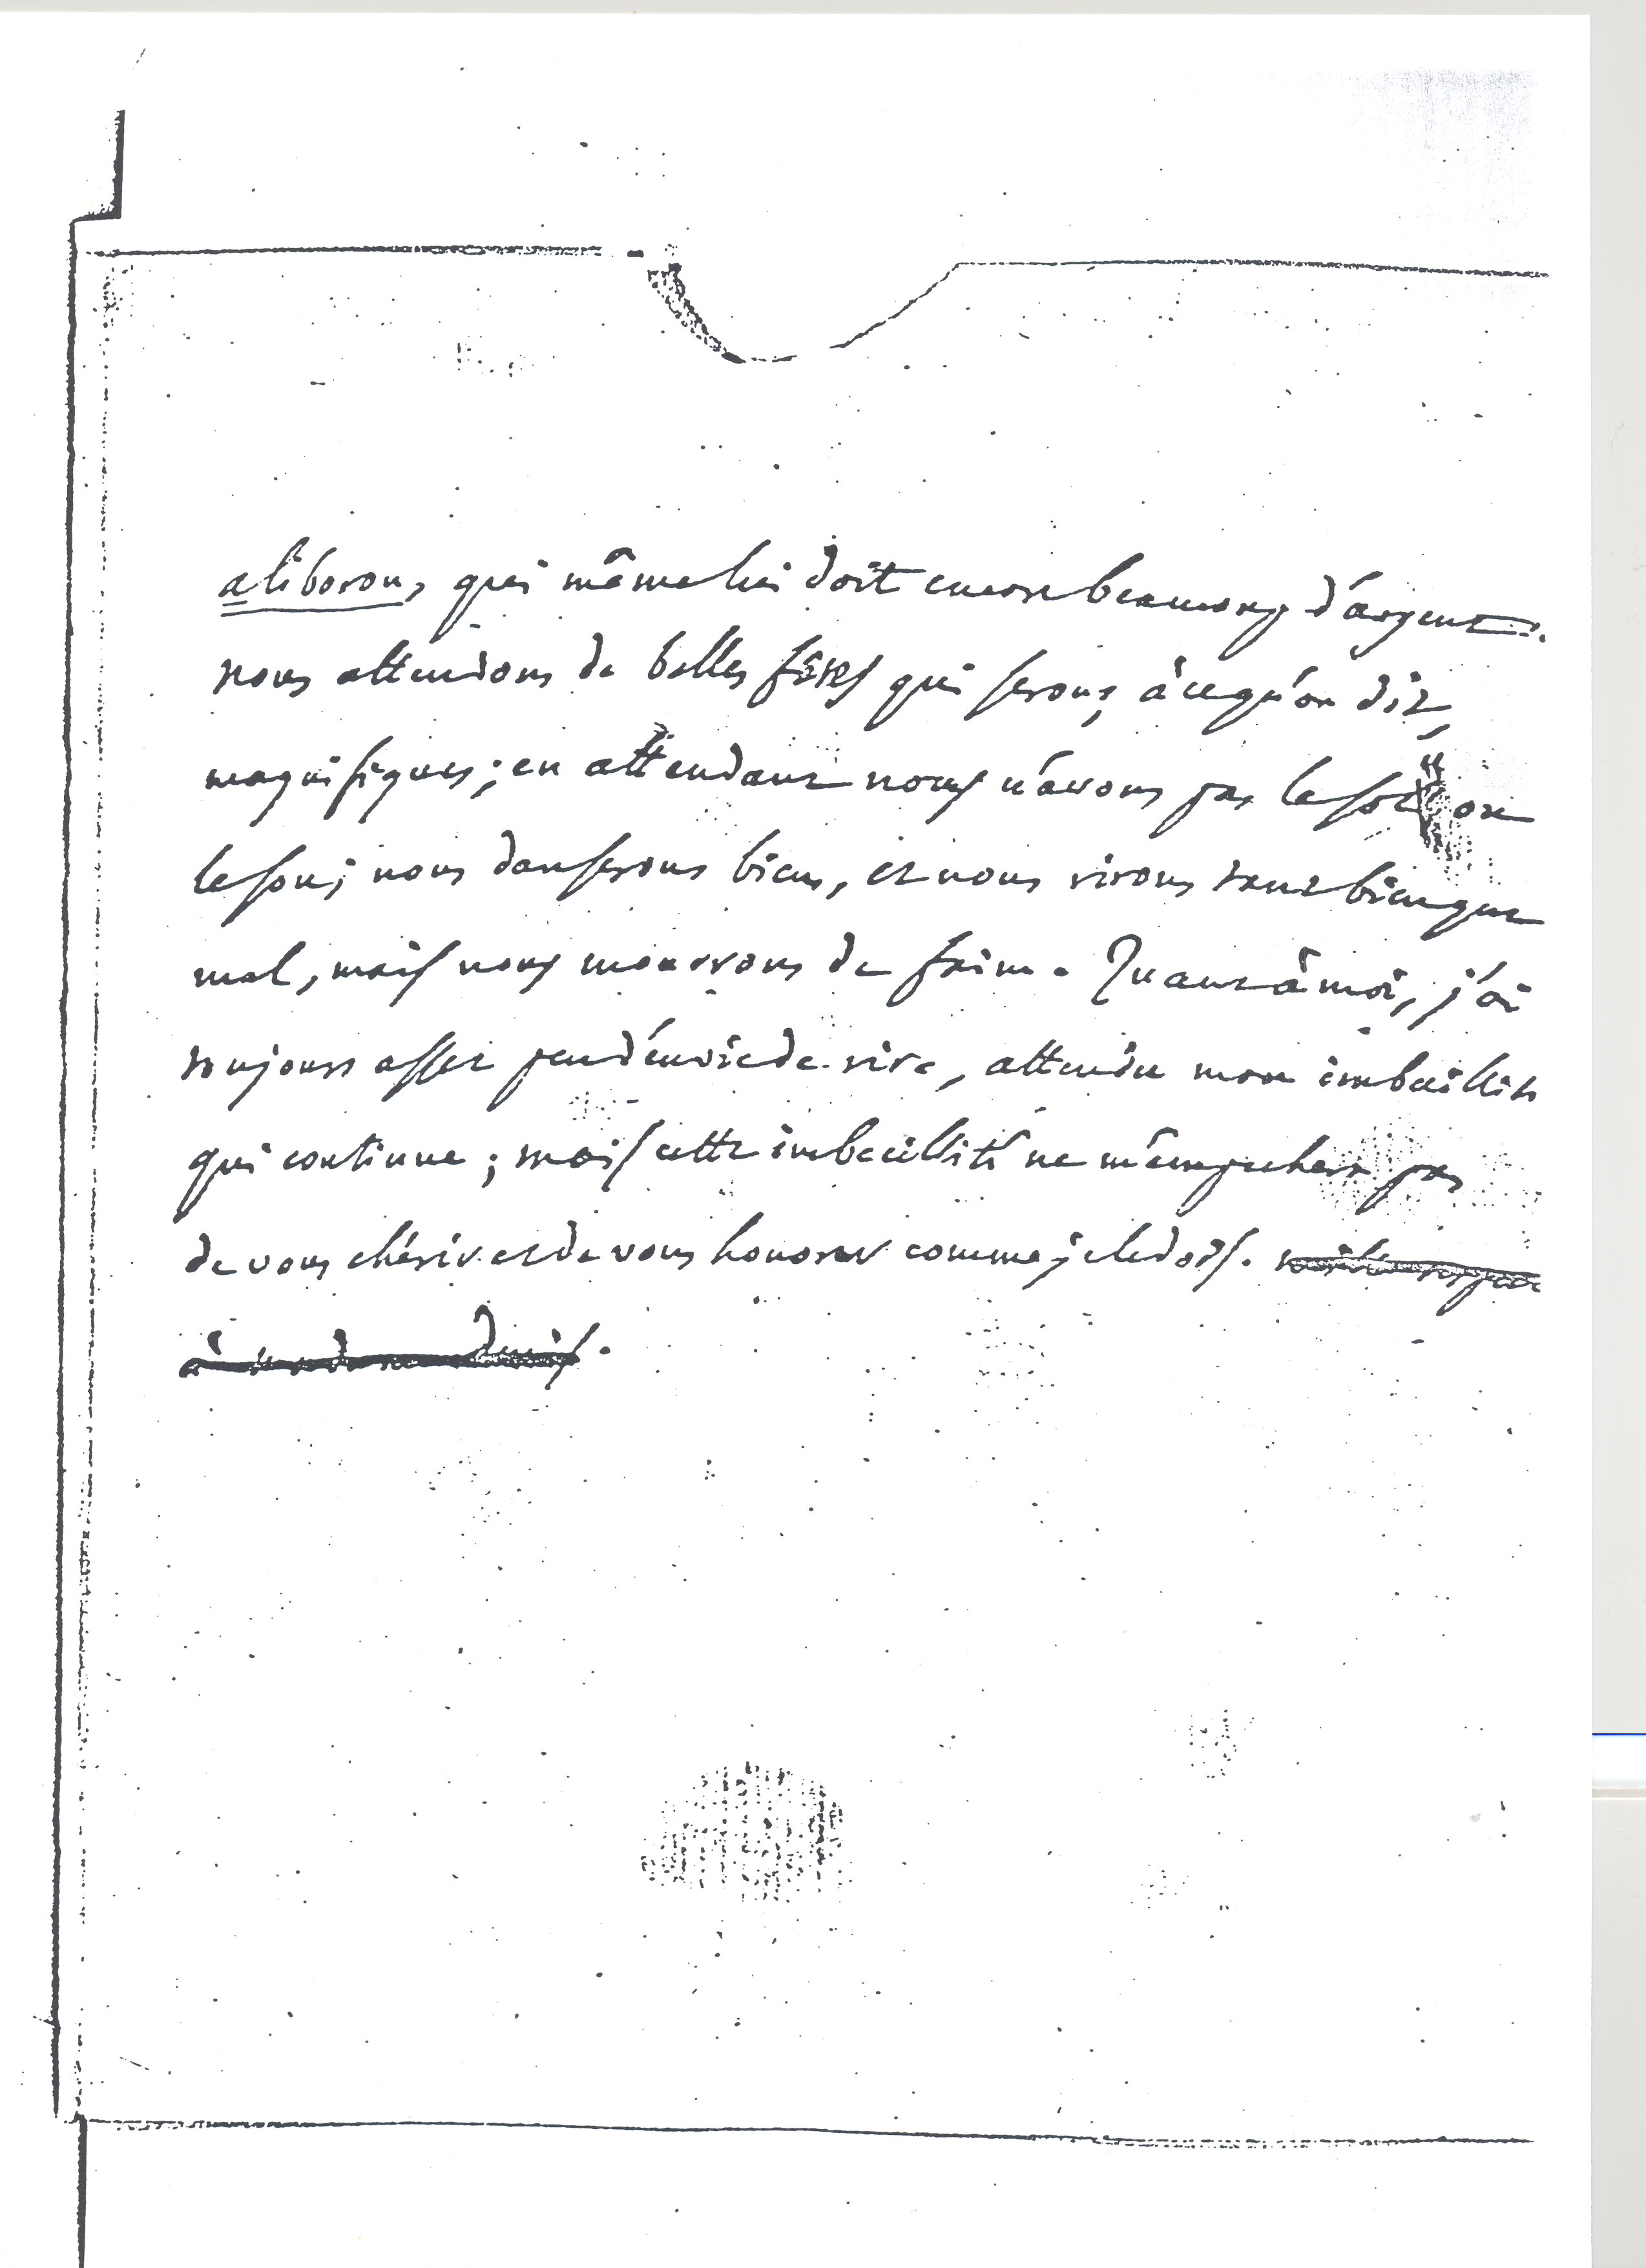 aliboron, qui même lui doit encore beaucoup d'argent.
nous attendons de belles fêtes qui seront, à ce qu'on dit,
magnifiques; en attendant nous n'avons pas le sol ou
le sou; nous danserons bien, et nous rirons tant bien que
mal, mais nous mourrons de faim. Quant à moi, j'ai
toujours assez peu d'envie de rire, attendu mon imbecillité
qui continue; mais cette imbecillité ne m'empechera pas
de vous chérir et de vous honorer comme je le dois.
à